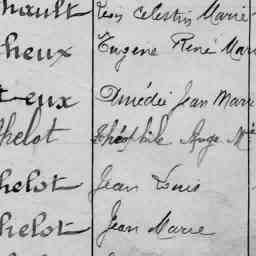 hault Léon Celestin Marie
cheux Eugène René Mari
eux Amédée Jean Marie
helot Théophile Ange Mie
helot Jean Louis
helot Jean Marie